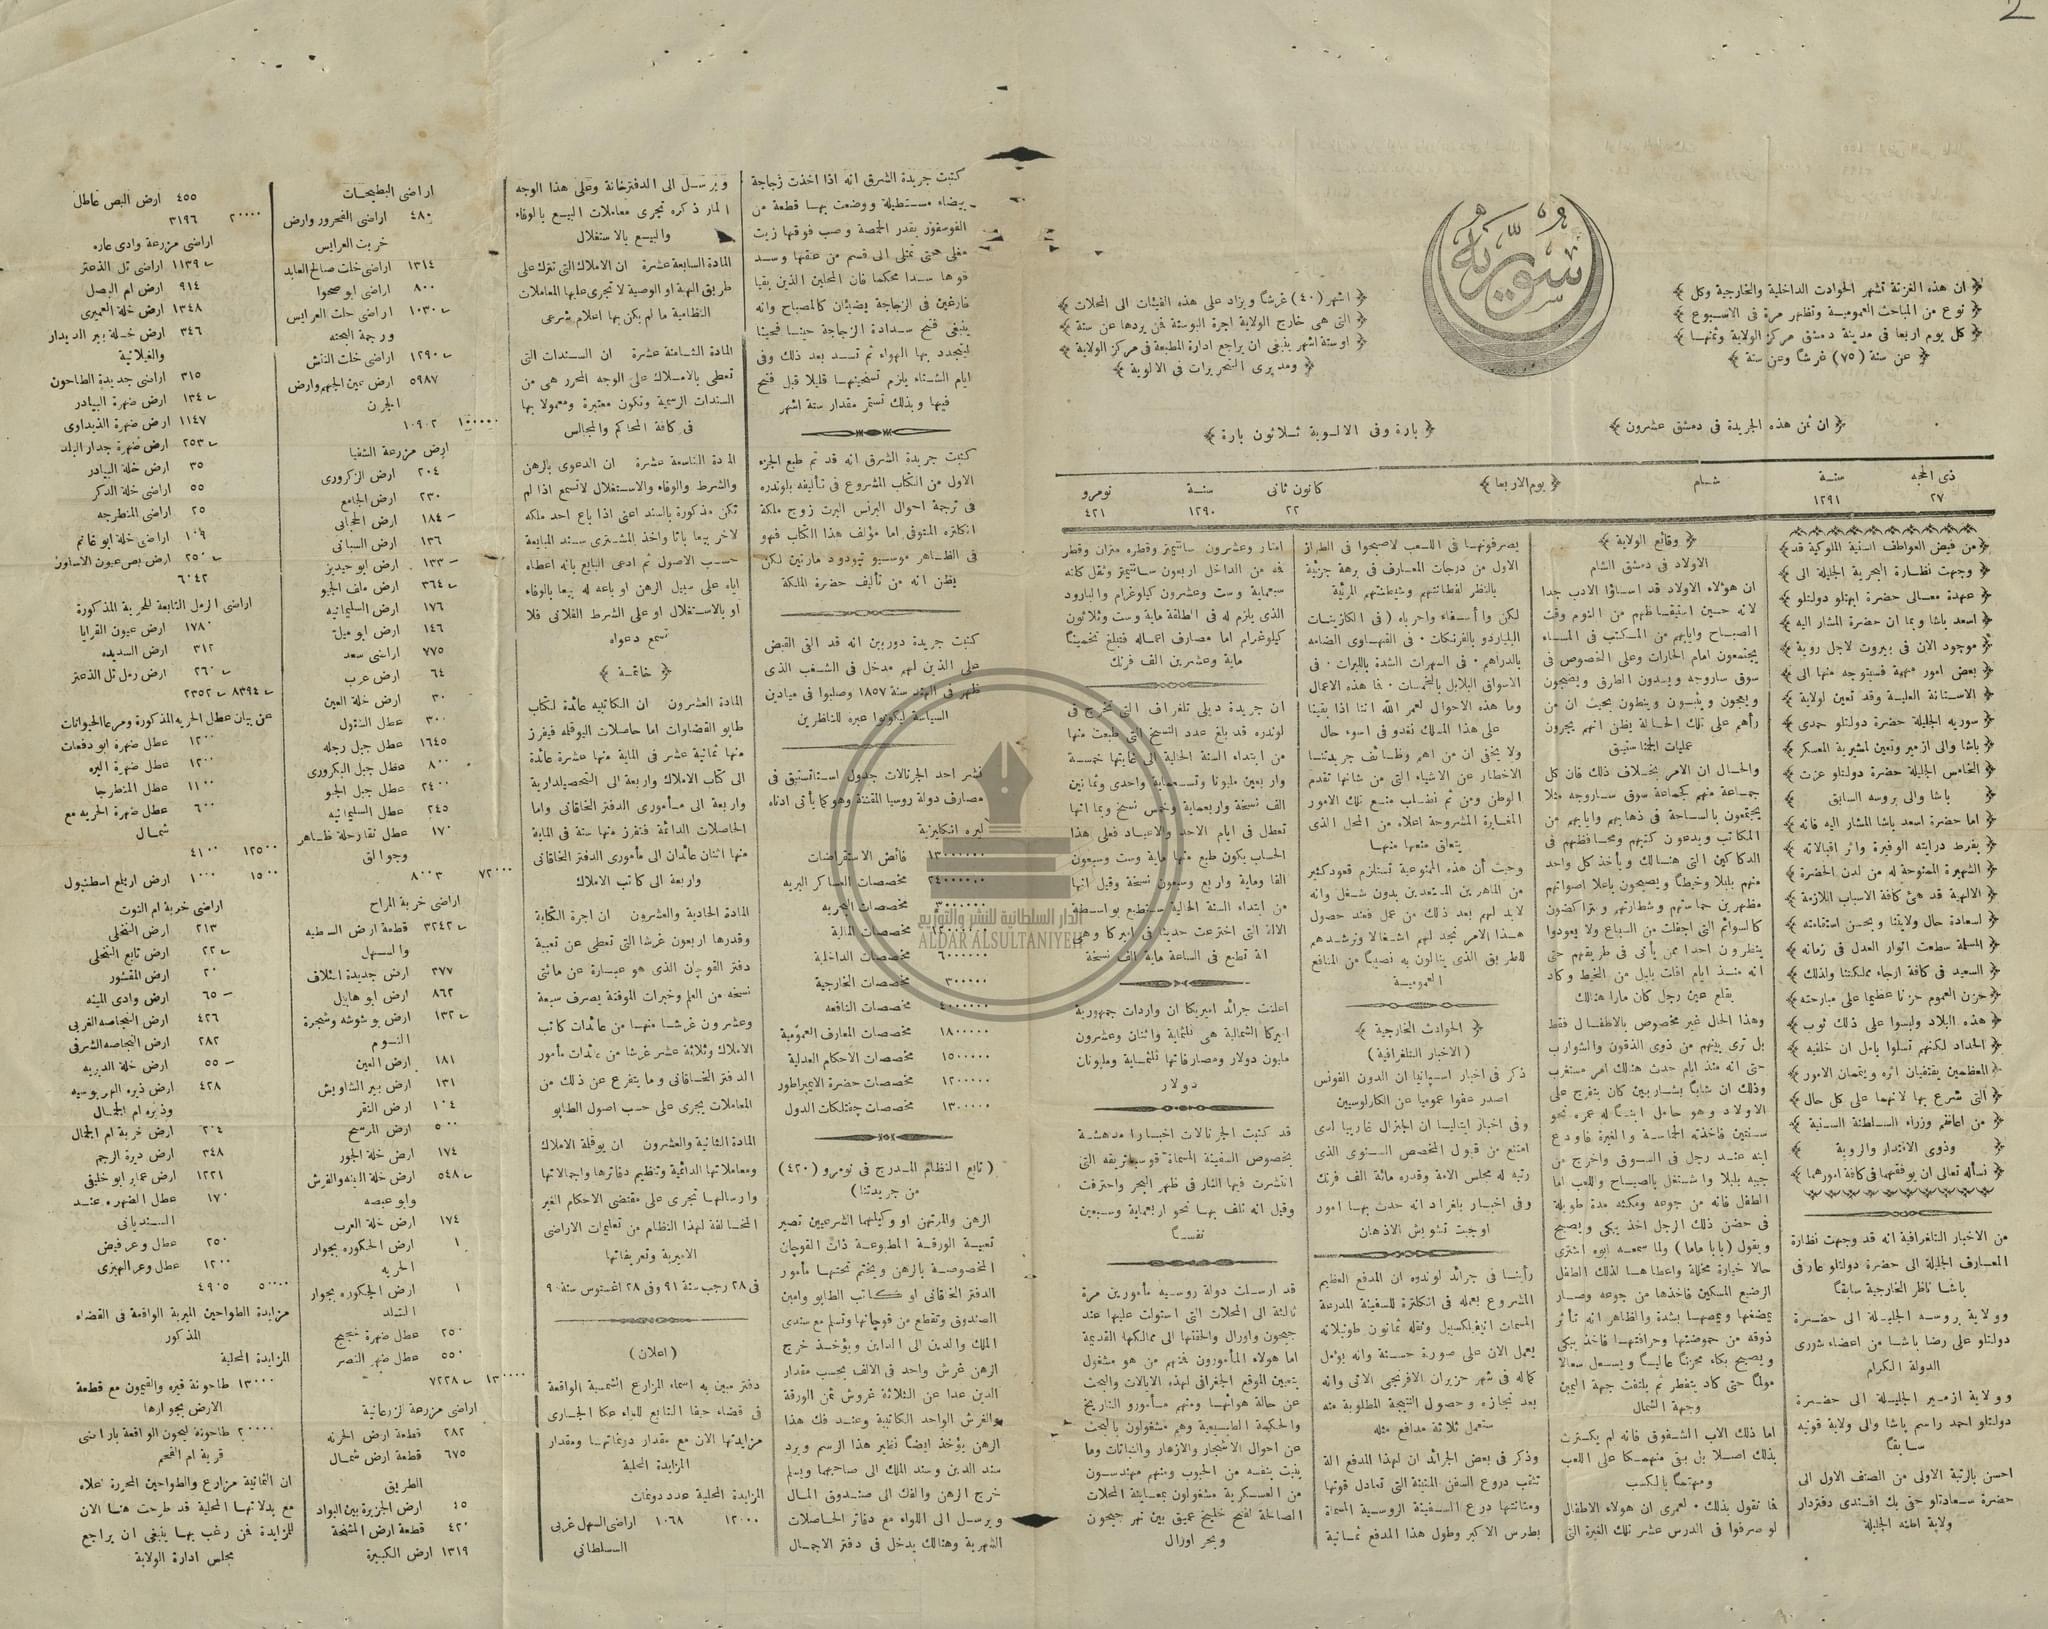 سورية
﴿ ان هذه الغزتة تشهر الحوادث الداخلية والخارجية وكل ﴾
﴿ نوع من المباحث العمومية وتظهر مرة فى الاسبوع ﴾
﴿ كل يوم اربعا فى مدينة دمشق مركز الولاية وثمنها ﴾
﴿ عن سنة (٧٥) غرشا وعن ستة ﴾
﴿ اشهر (٤٠) غرشا ويزاد على هذه الفيئات الى المحلات ﴾
﴿ التى هى خارج الولاية اجرة البوسته فمن يردها عن سنة ﴾
﴿ او ستة اشهر ينبغى ان يراجع ادارة المطبعة فى مركز الولاية ﴾
﴿ ومديرى التحريرات فى الالوية ﴾
﴿ ان ثمن هذه الجريدة فى دمشق عشرون ﴾
﴿ بارة وفى الالوية ثلاثون بارة ﴾
ذى الحجه ٢٧
سنة ١٢٩١
شام
﴿ يوم الاربعا ﴾
كانون ثانى ٢٢
سنة ١٢٩٠
نومرو ٤٢١
﴿ من فيض العواطف السنية الملوكية قد ﴾
﴿ وجهت نظارة البحرية الجليلة الى ﴾
﴿ عهدة معالى حضرة ابهتلو دولتلو ﴾
﴿ اسعد باشا وبما ان حضرة المشار اليه ﴾
﴿ موجود الان فى بيروت لاجل روية ﴾
﴿ بعض امور مهمة فسيتوجه منها الى ﴾
﴿ الاستانة العلية وقد تعين لولاية ﴾
﴿ سوريه الجليلة حضرة دولتلو حمدى ﴾
﴿ باشا والى ازمير وتعين لمشيرية المعسكر ﴾
﴿ الخامس الجليلة حضرة دولتلو عزت ﴾
﴿ باشا والى بروسه السابق ﴾
﴿ اما حضرة اسعد باشا المشار اليه فانه ﴾
﴿ بفرط درايته الوفيرة واثر اقبالاته ﴾
﴿ الشهيرة الممنوحة له من لدن الحضرة ﴾
﴿ الالهية قد هئ كافة الاسباب اللازمة ﴾
﴿ اسعادة حال ولايتنا وبحسن استقامته ﴾
﴿ المسلمة سطعت انوار العدل فى زمانه ﴾
﴿ السعيد فى كافة ارجاء مملكتنا ولذلك ﴾
﴿ حزن العموم حزنا عظيما على مبارحته ﴾
﴿ هذه البلاد ولبسوا على ذلك ثوب ﴾
﴿ الحداد لكنهم تسلوا بامل ان خلفيه ﴾
﴿ المعظمين يقتفيان اثره ويتممان الامور ﴾
﴿ التى شرع بها لانهما على كل حال ﴾
﴿ من اعاظم وزراء السلطنة السنية ﴾
﴿ وذوى الاقتدار والروية ﴾
﴿ نسأله تعالى ان يوفقهما فى كافة امورهما ﴾
من الاخبار التلغرافية انه قد وجهت نظارة
المعارف الجليلة الى حضرة دولتلو عارفى
باشا ناظر الخارجية سابقا
وولاية بروسه الجليلة الى حضرة
دولتلو على رضا باشا من اعضاء شورى
الدولة الكرام
وولاية ازمير الجليلة الى حضرة
دولتلو احمد راسم باشا والى ولاية قونيه
سابقا
احسن بالرتبة الاولى من الصنف الاول الى
حضرة سعادتلو حقى بك افندى دفتردار
ولاية اطنه الجليلة
﴿ وقائع الولاية ﴾
الاولاد فى دمشق الشام
ان هولاء الاولاد قد اساؤا الادب جدا
لانه حسين استيقاظهم من النوم وقت
الصباح وايابهم من المكتب فى المساء
يجتمعون امام الحارات وعلى الخصوص فى
سوق ساروجه ويسدون الطرق ويضجون
ويعجون ويثبون وينطون بحيث ان من
رأهم على تلك الحالة يظن انهم يجرون
عمليات الجمناستيق
والحال ان الامر بخلاف ذلك فان كل
جماعة منهم كجماعة سوق ساروجه مثلا
يجتمعون بالساحة فى ذهابهم وايابهم من
المكاتب ويدعون كتبهم ومحافظهم فى
الدكاكين التى هنالك ويأخذ كل واحد
منهم بلبلا وخيطا ويصيحون باعلا اصواتهم
مظهرين حماستهم وشطارتهم ويتراكضون
كالسوائم التى اجفلت من السباع ولا يعودوا
ينظرون احدا ممن يأتى فى طريقهم حتى
انه منذ ايام افلت بلبل من الخيط وكاد
يقلع عين رجل كان مارا هنالك
وهذا الحال غير مخصوص بالاطفال فقط
بل ترى بينهم من ذوى الذقون والشوارب
حتى انه منذ ايام حدث هنالك امر مستغرب
وذلك ان شابا بشاربين كان يتفرج على
الاولاد وهو حامل ابنا له عمره نحو
سنتين فاخذته الحماسة والغيرة فاودع
ابنه عند رجل فى السوق واخرج من
جيبه بلبلا واشتغل بالصياح واللعب اما
الطفل فانه من جوعه ومكثه مدة طويلة
فى حضن ذلك الرجل اخذ يبكى ويصيح
ويقول (بابا ماما) ولما سمعه ابوه اشترى
حالا خيارة مخللة واعطاها لذلك الطفل
الرضيع المسكين فاخذها من جوعه وصار
يمضغها ويمصها بشدة والظاهر انه تأثر
ذوقه من حموضتها وحرافتها فاخذ يبكى
ويصيح بكاء محزنا عاليا ويسعل سعالا
مولما حتى كاد يتفطر ثم يلتفت جهة اليمين
وجهة الشمال
اما ذلك الاب الشفوق فانه لم يكترث
بذلك اصلا بل بقى منهمكا على اللعب
ومهتما بالكسب
فما نقول بذلك ٠ لعمرى ان هولاء الاطفال
لو صرفوا فى الدرس عشر تلك الغيرة التى
يصرفونها فى اللعب لاصبحوا فى الطراز
الاول من درجات المعارف فى برهة جزئية
بالنظر لفطانتهم وشيطنتهم المرئية
لكن وا أسفاه واحرباه (فى الكازينات
البلياردو بالفرنكات ٠ فى القهاوى الضامه
بالدراهم ٠ فى السهرات الشدة بالليرات ٠ فى
الاسواق البلابل بالخمسات ٠ فما هذه الاعمال
وما هذه الاحوال لعمر الله اننا اذا بقينا
على هذا المسلك نغدو فى اسوء حال
ولا يخفى ان من اهم وظائف جريدتنا
الاخطار عن الاشياء التى من شانها تقدم
الوطن ومن ثم نطلب منع تلك الامور
المغايرة المشروحة اعلاه من المحل الذى
يتعلق منعها منها
وحيث أن هذه الممنوعية تستلزم قعود كثير
من الماهرين المستعدين بدون شغل وانه
لابد لهم بعد ذلك من عمل فعند حصول
هذا الامر نجد لهم اشغالا ونرشدهم
للطريق الذى ينالون به نصيبا من المنافع
العمومية
﴿ الحوادث الخارجية ﴾
(الاخبار التلغرافية)
ذكر فى اخبار اسبانيا ان الدون الفونس
اصدر عفوا عموميا عن الكارلوسيين
وفى اخبار ايتاليا ان الجنرال غاريبالدى
امتنع من قبول المخصص السنوى الذى
رتبه له مجلس الامة وقدره مائة الف فرنك
وفى اخبار بلغراد انه حدث بها امور
اوجبت تشويش الاذهان
رأينا فى جرائد لوندره ان المدفع العظيم
المشروع بعمله فى انكلترة للسفينة المدرعة
المسمات انفيلكسيبل وثقله ثمانون طونيلاته
يعمل الان على صورة حسنة وانه يؤمل
كماله فى شهر حزيران الافرنجى الاتى وانه
بعد نجازه وحصول النتيجة المطلوبة منه
ستعمل ثلاثة مدافع مثله
وذكر فى بعض الجرائد ان لهذا المدفع الة
تثقب دروع السفن المتينة التى تعادل قوتها
ومتانتها درع السفينة الروسية المسماة
بطرس الاكبر وطول هذا المدفع ثمانية
امتار وعشرون سانتيمتر وقطره متران وقطر
فمه من الداخل اربعون سانتيمتر وثقل كلته
سبعماية وست وعشرون كيلوغرام والبارود
الذى يلزم له فى اطلقة ماية وست وثلاثون
كيلوغرام اما مصارف اعماله فتبلغ تخمينا
ماية وعشرين الف فرنك
ان جريدة ديلى تلغراف التى تخرج فى
لوندره قد بلغ عدد النسخ التى طبعت منها
من ابتداء السنة الحالية الى غايتها خمسة
واربعين مليونا وتسعماية واحدى وثمانين
الف نسخة واربعماية وخمس نسخ وبما انها
تعطل فى ايام الاحد والاعياد فعلى هذا
الحساب يكون طبع منها ماية وست وسبعون
الفا وماية واربع وسبعون نسخة وقيل انها
من ابتداء السنة الحالية ستطبع بواسطة
الالة التى اخترعت حديثا فى اميركا وهى
الة تطبع فى الساعة ماية الف نسخة
اعلنت جرائد اميريكا ان واردات جمهورية
اميركا الشمالية هى ثلثماية واثنان وعشرون
مليون دولار ومصارفاتها ثلثماية ومليونان
دولار
قد كتبت الجرنالات اخبارا مدهشة
بخصوص السفينة المسماة قوسپتريقه التى
انتشرت فيها النار فى ظهر البحر واحترقت
وقيل انه تلف بها نحو اربعماية وسبعين
نفسا
قد ارسلت دولة روسيه مأمورين مرة
ثالثة الى المحلات التى استولت عليها عند
جيحون واورال والحقتها الى ممالكها القديمة
اما هولاء المأمورون فمنهم من هو مشغول
بتعيين الموقع الجغرافى لهذه الايالات والبحث
عن حالة هوائها ومنهم مأمورو التاريخ
والحكمة الطبيعية وهم مشغولون بالبحث
عن احوال الاشجار والازهار والنباتات وما
ينبت بنفسه من الحبوب ومنهم مهندسون
من العسكرية مشغولون بمعاينة المحلات
الصالحة لفتح خليج عميق بين نهر جيحون
وبحر اورال
كتبت جريدة الشرق انه اذا اخذت زجاجة
بيضاء مستطيلة ووضعت بها قطعة من
الفوسفور بقدر الحمصة وصب فوقها زيت
مغلى حتى تمتلى الى قسم من عنقها وسد
فوها سدا محكما فان المحلين الذين بقيا
فارغين فى الزجاجة يضيئان كالمصباح وانه
ينبغى فتح سدادة الزجاجة حينا فحينا
ليتجدد بها الهواء ثم تسد بعد ذلك وفى
ايام الشتاء يلزم تسخينها قليلا قبل فتح
فيها وبذلك تستمر مقدار ستة اشهر
كتبت جريدة الشرق انه قد تم طبع الجزء
الاول من الكتاب المشروع فى تأليفه بلوندره
فى ترجمة احوال البرنس البرت زوج ملكة
انكلتره المتوفى اما مؤلف هذا الكتاب فهو
فى الظاهر موسيو تيودود مارتين لكن
يظن انه من تأليف حضرة الملكة
كتبت جريدة دوربين انه قد القى القبض
على الذين لهم مدخل فى الشغب الذى
ظهر فى الهند سنة ١٨٥٧ وصلبوا فى ميادين
السياسة ليكونوا عبرة للناظرين
نشر احد الجرنالات جدول استاتستيق فى
مصارف دولة روسيا المقننة وهو كما يأتى ادناه
ليره انكليزية
١٣٠٠٠٠٠٠ فائض الاستقراضات
٢٤٠٠٠٠٠٠ مخصصات العساكر البريه
٣٠٠٠٠٠٠ مخصصات البحريه
١٢٠٠٠٠٠٠ مخصصات المالية
٦٠٠٠٠٠٠ مخصصات الداخلية
٣٠٠٠٠٠ مخصصات الخارجية
٤٠٠٠٠٠٠ مخصصات النافعه
١٨٠٠٠٠٠ مخصصات المعارف العمومية
١٥٠٠٠٠٠ مخصصات الاحكام العدلية
١٢٠٠٠٠٠ مخصصات حضرة الايمپراطور
١٣٠٠٠٠٠ مخصصات چفتلكات الدول
(تابع النظام المدرج فى نومرو (٤٢٠)
من جريدتنا)
الرهن والمرتهن او وكيلهما الشرعيين تصير
تعبية الورقة المطبوعة ذات القوچان
المخصوصة بالرهن ويختم تحتها مأمور
الدفتر الخاقانى او كاتب الطابو وامين
الصندوق وتقطع من قوچانها وتسلم مع سندى
الملك والدين الى الداين ويؤخذ خرج
الرهن غرش واحد فى الالف بحسب مقدار
الدين عدا عن الثلاثة غروش ثمن الورقة
والغرش الواحد الكاتبية وعند فك هذا
الرهن يؤخذ ايضا نظير هذا الرسم ويرد
سند الدين وسند الملك الى صاحبهما ويسلم
خرج الرهن والفك الى صندوق المال
ويرسل الى اللواء مع دفاتر الحاصلات
الشهرية وهنالك يدخل فى دفتر الاجمال
ويرسل الى الدفترخانة وعلى هذا الوجه
المار ذكره تجرى معاملات البيع بالوفاء
والبيع بالاستغلال
المادة السابعة عشرة ان الاملاك التى تترك على
طريق الهبة او الوصية لا تجرى عليها المعاملات
النظامية ما لم يكن بها اعلام شرعى
المادة الثامنة عشرة ان السندات التى
تعطى بالاملاك على الوجه المحرر هى من
السندات الرسمية وتكون معتبرة ومعمولا بها
فى كافة المحاكم والمجالس
المادة التاسعة عشرة ان الدعوى بالرهن
والشرط والوفاء والاستغلال لا تسمع اذا لم
تكن مذكورة بالسند اعنى اذا باع احد ملكه
لاخر بيعا باتا واخذ المشترى سند المبايعة
حسب الاصول ثم ادعى البايع بانه اعطاه
اياه على سبيل الرهن او باعه له بيعا بالوفاء
او بالاستغلال او على الشرط الفلانى فلا
تسمع دعواه
﴿ خاتمة ﴾
المادة العشرون ان الكاتبيه عائدة لكتاب
طابو القضاوات اما حاصلات اليوقلمه فيفرز
منها ثمانية عشر فى الماية منها عشرة عائدة
الى كتاب الاملاك واربعة الى التحصيلدارية
واربعة الى مأمورى الدفتر الخاقانى واما
الحاصلات الدائمة فتفرز منها ستة فى الماية
منها اثنان عائدان الى مأمورى الدفتر الخاقانى
واربعة الى كاتب الاملاك
المادة الحادية والعشرون ان اجرة الكتابة
وقدرها اربعون غرشا التى تعطى عن تعبية
دفتر القوچان الذى هو عبارة عن مائتى
نسخه من العلم وخبرات الموقتة يصرف سبعة
وعشرون غرشا منها من عائدات كاتب
الاملاك وثلاثة عشر غرشا من عائدات مأمور
الدفتر الخاقانى وما يتفرع عن ذلك من
المعاملات يجرى على حسب اصول الطابو
المادة الثانية والعشرون ان يوقلمة الاملاك
ومعاملاتها الدائمية وتنظيم دفاترها واجمالاتها
وارسالها تجرى على مقتضى الاحكام الغير
المخالفة لهذا النظام من تعليمات الاراضى
الاميرية وتعريفاتها
فى ٢٨ رجب سنة ٩١ وفى ٢٨ اغستوس سنة ٩٠
(اعلان)
دفتر مبين به اسماء المزارع الشمسية الواقعة
فى قضاء حيفا التابع للواء عكا الجارى
مزايدتها الان مع مقدار دونماتها ومقدار
المزايدة المحلية
المزايدة المحلية عدد دونمات
١٢٠٠٠ ١٠٦٨ اراضى السهل غربى
السلطانى
اراضى البطيحات
٤٨٠ اراضى الفحرور وارض
خربت العرايس
١٣١٤ اراضى خلت صالح العابد
٨٠٠ اراضى ابو صحوا
١٠٣٠ اراضى خلت العرايس
ورجمة البحته
١٢٩٠ اراضى خلت النتش
٥٩٨٧ ارض عين الجهم وارض
الجرن
١٠٠٠٠٠ ١٠٩٠٢
ارض مزرعة الشفيا
٢٠٤ ارض الزكرورى
٢٣٠ ارض الجامع
١٨٤ ارض الحجانى
١٣٦ ارض السباتى
١٣٣ ارض ابو حيديز
٣٦٤ ارض ملف الجبو
١٧٦ ارض السليمانيه
١٤٦ ارض ابو ميلة
٧٧٥ اراضى سعد
٦٤ ارض عرب
٣٠ ارض خلة العين
٣٠٠ عطل النتول
١٦٤٥ عطل جبل رجله
٨٠٠ عطل جبل البكرورى
٢٤٠٠ عطل جبل الجبو
٢٤٥ عطل السليمانيه
١٧٠ عطل نقارحلة ظاهر
وجوالق
٧٢٠٠٠ ٨٠٠٣
اراضى خربة المراح
٣٢٤٢ قطعة ارض السطيه
والسهل
٣٧٧ ارض جديدة ائلاف
٨٦٢ ارض ابو هابيل
١٣٢ ارض بوشوشه وشجرة
النوم
١٨١ ارض العين
١٣١ ارض بير الشاويش
١٠٤ ارض النقر
٥٠٠ ارض المرسح
١٧٤ ارض خلة الجور
٥٤٨ ارض خلة البنه والقرش
وابو عبصه
١٧٤ ارض خلة العرب
١ ارض الحكوره بجوار
الحريه
١ ارض الحكوره بجوار
التلد
٢٥٠ عطل ضهرة خجيج
٥٥٠ عطل ضهر النصر
١٣٠٠٠٠ ٧٢٢٨
اراضى مزرعة الزرعانية
٢٨٢ قطعة ارض الحرنه
٦٧٥ قطعة ارض شمال
الطريق
٤٥ ارض الجزيرة بين الواد
٤٢٠ قطعة ارض المشنجة
١٣١٩ ارض الكبيرة
٤٥٥ ارض البص عاطل
٢٠٠٠٠ ٣١٩٦
اراضى مزرعة وادى عاره
١١٣٩ اراضى تل الذعتر
٩١٤ ارض ام البصل
١٣٤٨ ارض خلة العميرى
٣٤٦ ارض خلة بير الديدار
والغيلانية
٣١٥ اراضى جديدة الطاحون
١٣٤ ارض ضهرة البيادر
١١٤٧ ارض ضهرة الذيداوى
٢٥٣ ارض ضهرة جدار البلد
٣٥ ارض خلة البيادر
٥٥ اراضى خلة الدكر
٢٥ اراضى المنطرجه
١٠٩ اراضى خلة ابو غانم
٢٥٠ ارض بص عيون الاساون
٦٠٤٢
اراضى الرمل التابعة للخربة المذكورة
١٧٨٠ ارض عيون القرايا
٣١٢ ارض السديده
٢٦٠ ارض رمل تل الذعتر
٨٣٩٤ ٢٣٥٢
عن بيان عطل الخربه المذكورة ومرعا الحيوانات
١٢٠٠ عطل ضهرة ابو دفعات
١٢٠٠ عطل ضهرة البره
١١٠٠ عطل المنطرجا
٦٠٠ عطل ضهرة الخربه مع
شمال
١٢٥٠٠ ٤١٠٠
١٥٠٠ ١٠٠٠ ارض اربلغ اسطنبول
اراضى خربة ام التوت
٢١٣ ارض النخلى
٢٢ ارض تابع النخلى
٢٠ ارض المقشور
٦٥ ارض وادى المبنه
٤٢٦ ارض النجاصه الغربى
٢٨٢ ارض النجاصه الشرقى
٥٥ ارض خلة الديريه
٤٢٨ ارض ذيره المهربوسيه
وذيره ام الجمال
٢٠٤ ارض خربة ام الجمال
٣٤٨ ارض ديرة الرجم
١٢٢١ ارض عماير ابو خليفى
١٧٠ عطل الضهره عند
السنديانى
٢٥٠ عطل وعر فيض
١٢٠٠ عطل وعر الهيزى
٥٠٠٠٠ ٤٩٠٥
مزايدة الطواحين الميرية الواقعة فى القضاء
المذكور
المزايدة المحلية
١٣٠٠٠ طاحونة قيره والقيمون مع قطعة
الارض بجوارها
٢٠٠٠٠ طاحونة لجون الواقعة باراضى
قرية ام الفحم
ان الثمانية مزارع والطواحين المحررة اعلاه
مع بدلاتها المحلية قد طرحت هنا الان
للمزايدة فمن رغب بها ينبغى ان يراجع
مجلس ادارة الولاية
الدار السلطانية للنشر والتوزيع
ALDAR ALSULTANIYEH
2